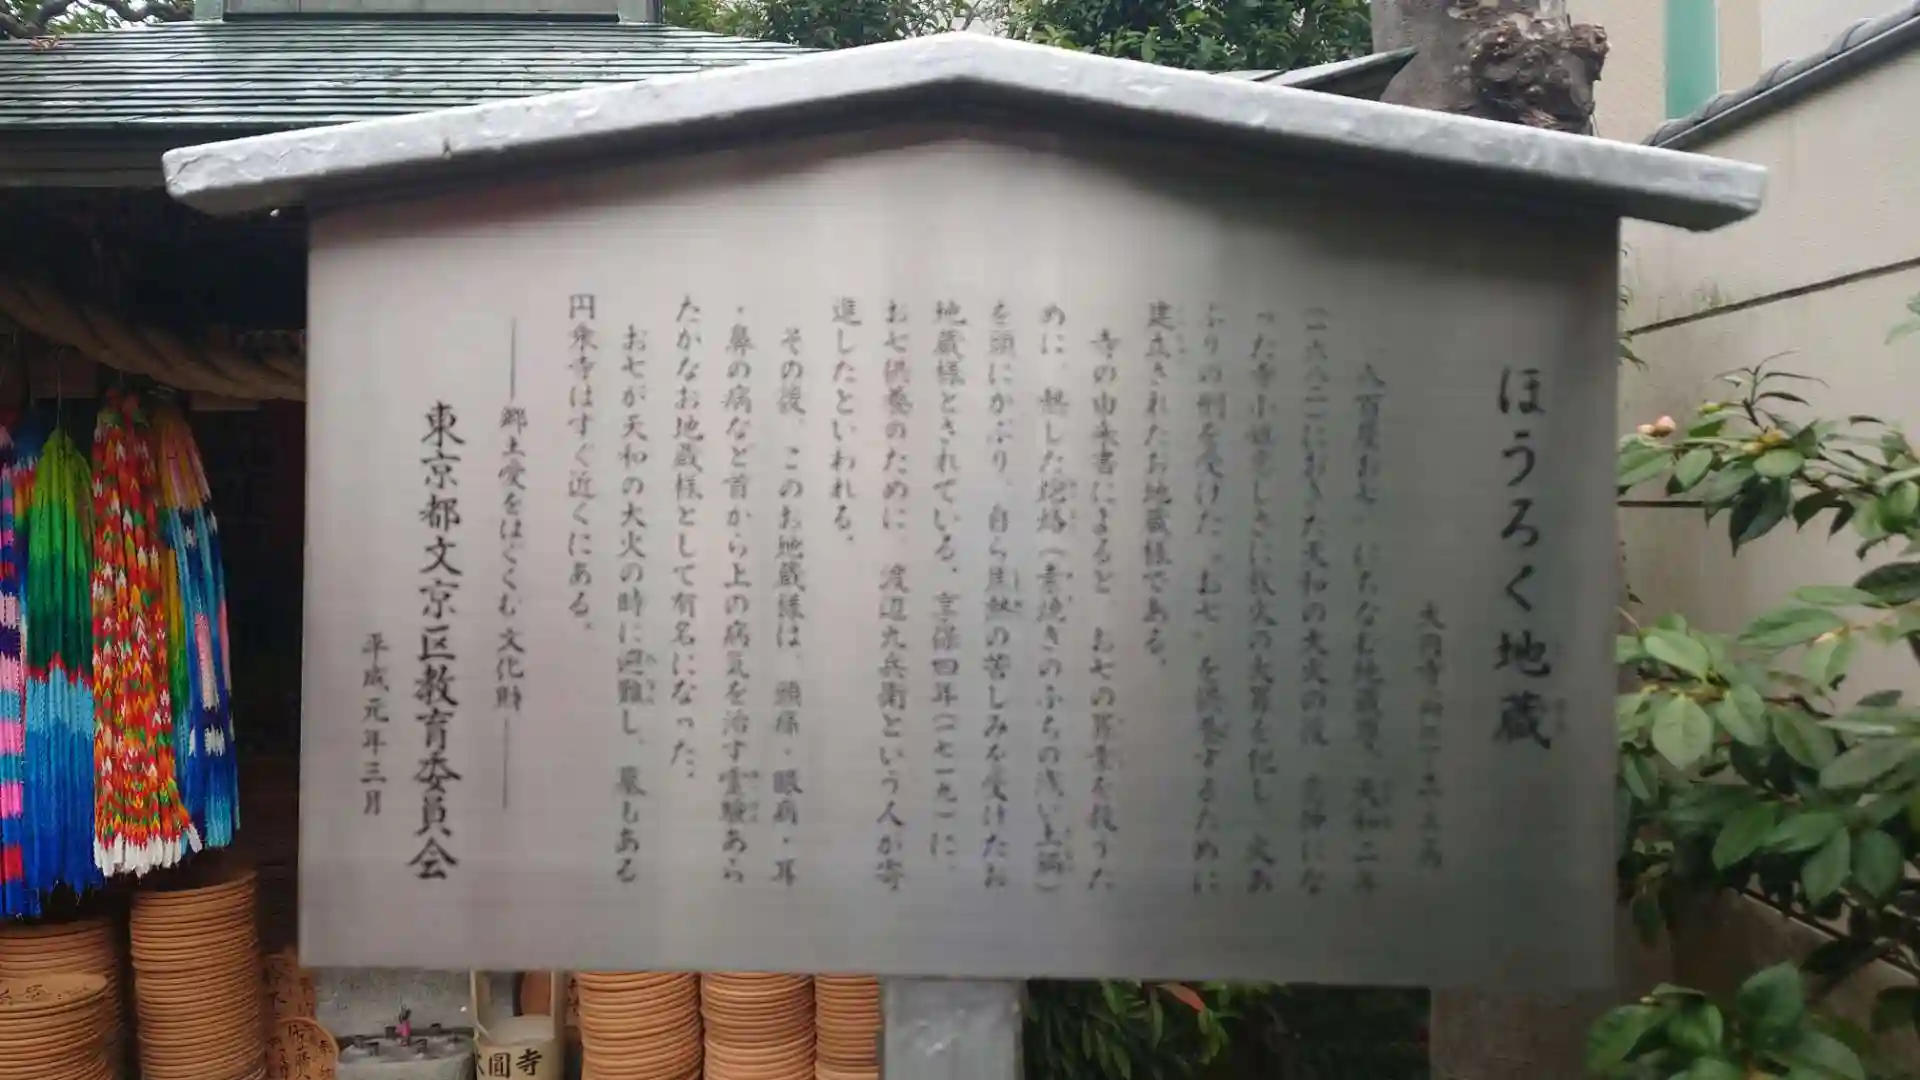 ほうろく地蔵
大円寺
八百屋お七にちなむお地蔵尊。天和二年
(一六八二)におきた天和の大火の後、恋仲にな
った寺小姓恋しさに放火の大罪を犯し、火あ
ぶりの刑を受けた“お七”を供養するために
建立されたお地蔵様である。
寺の由来書によると、お七の罪業を救うた
めに、熱した焙烙(素焼きのふちの浅い土鍋)
を頭にかぶり、自ら焦熱の苦しみを受けたお
地蔵様とされている。享保四年(一七一九)に、
お七供養のために、渡辺九兵衛という人が寄
進したといわれる。
その後、このお地蔵様は、頭痛・眼病・耳
・鼻の病など首から上の病気を治す霊験あら
たかなお地蔵様として有名になった。
お七が天和の大火の時に避難し、墓もある
円乗寺はすぐ近くにある。
郷土愛をはぐくむ文化財
東京都文京区教育委員会
平成元年三月
大圓寺